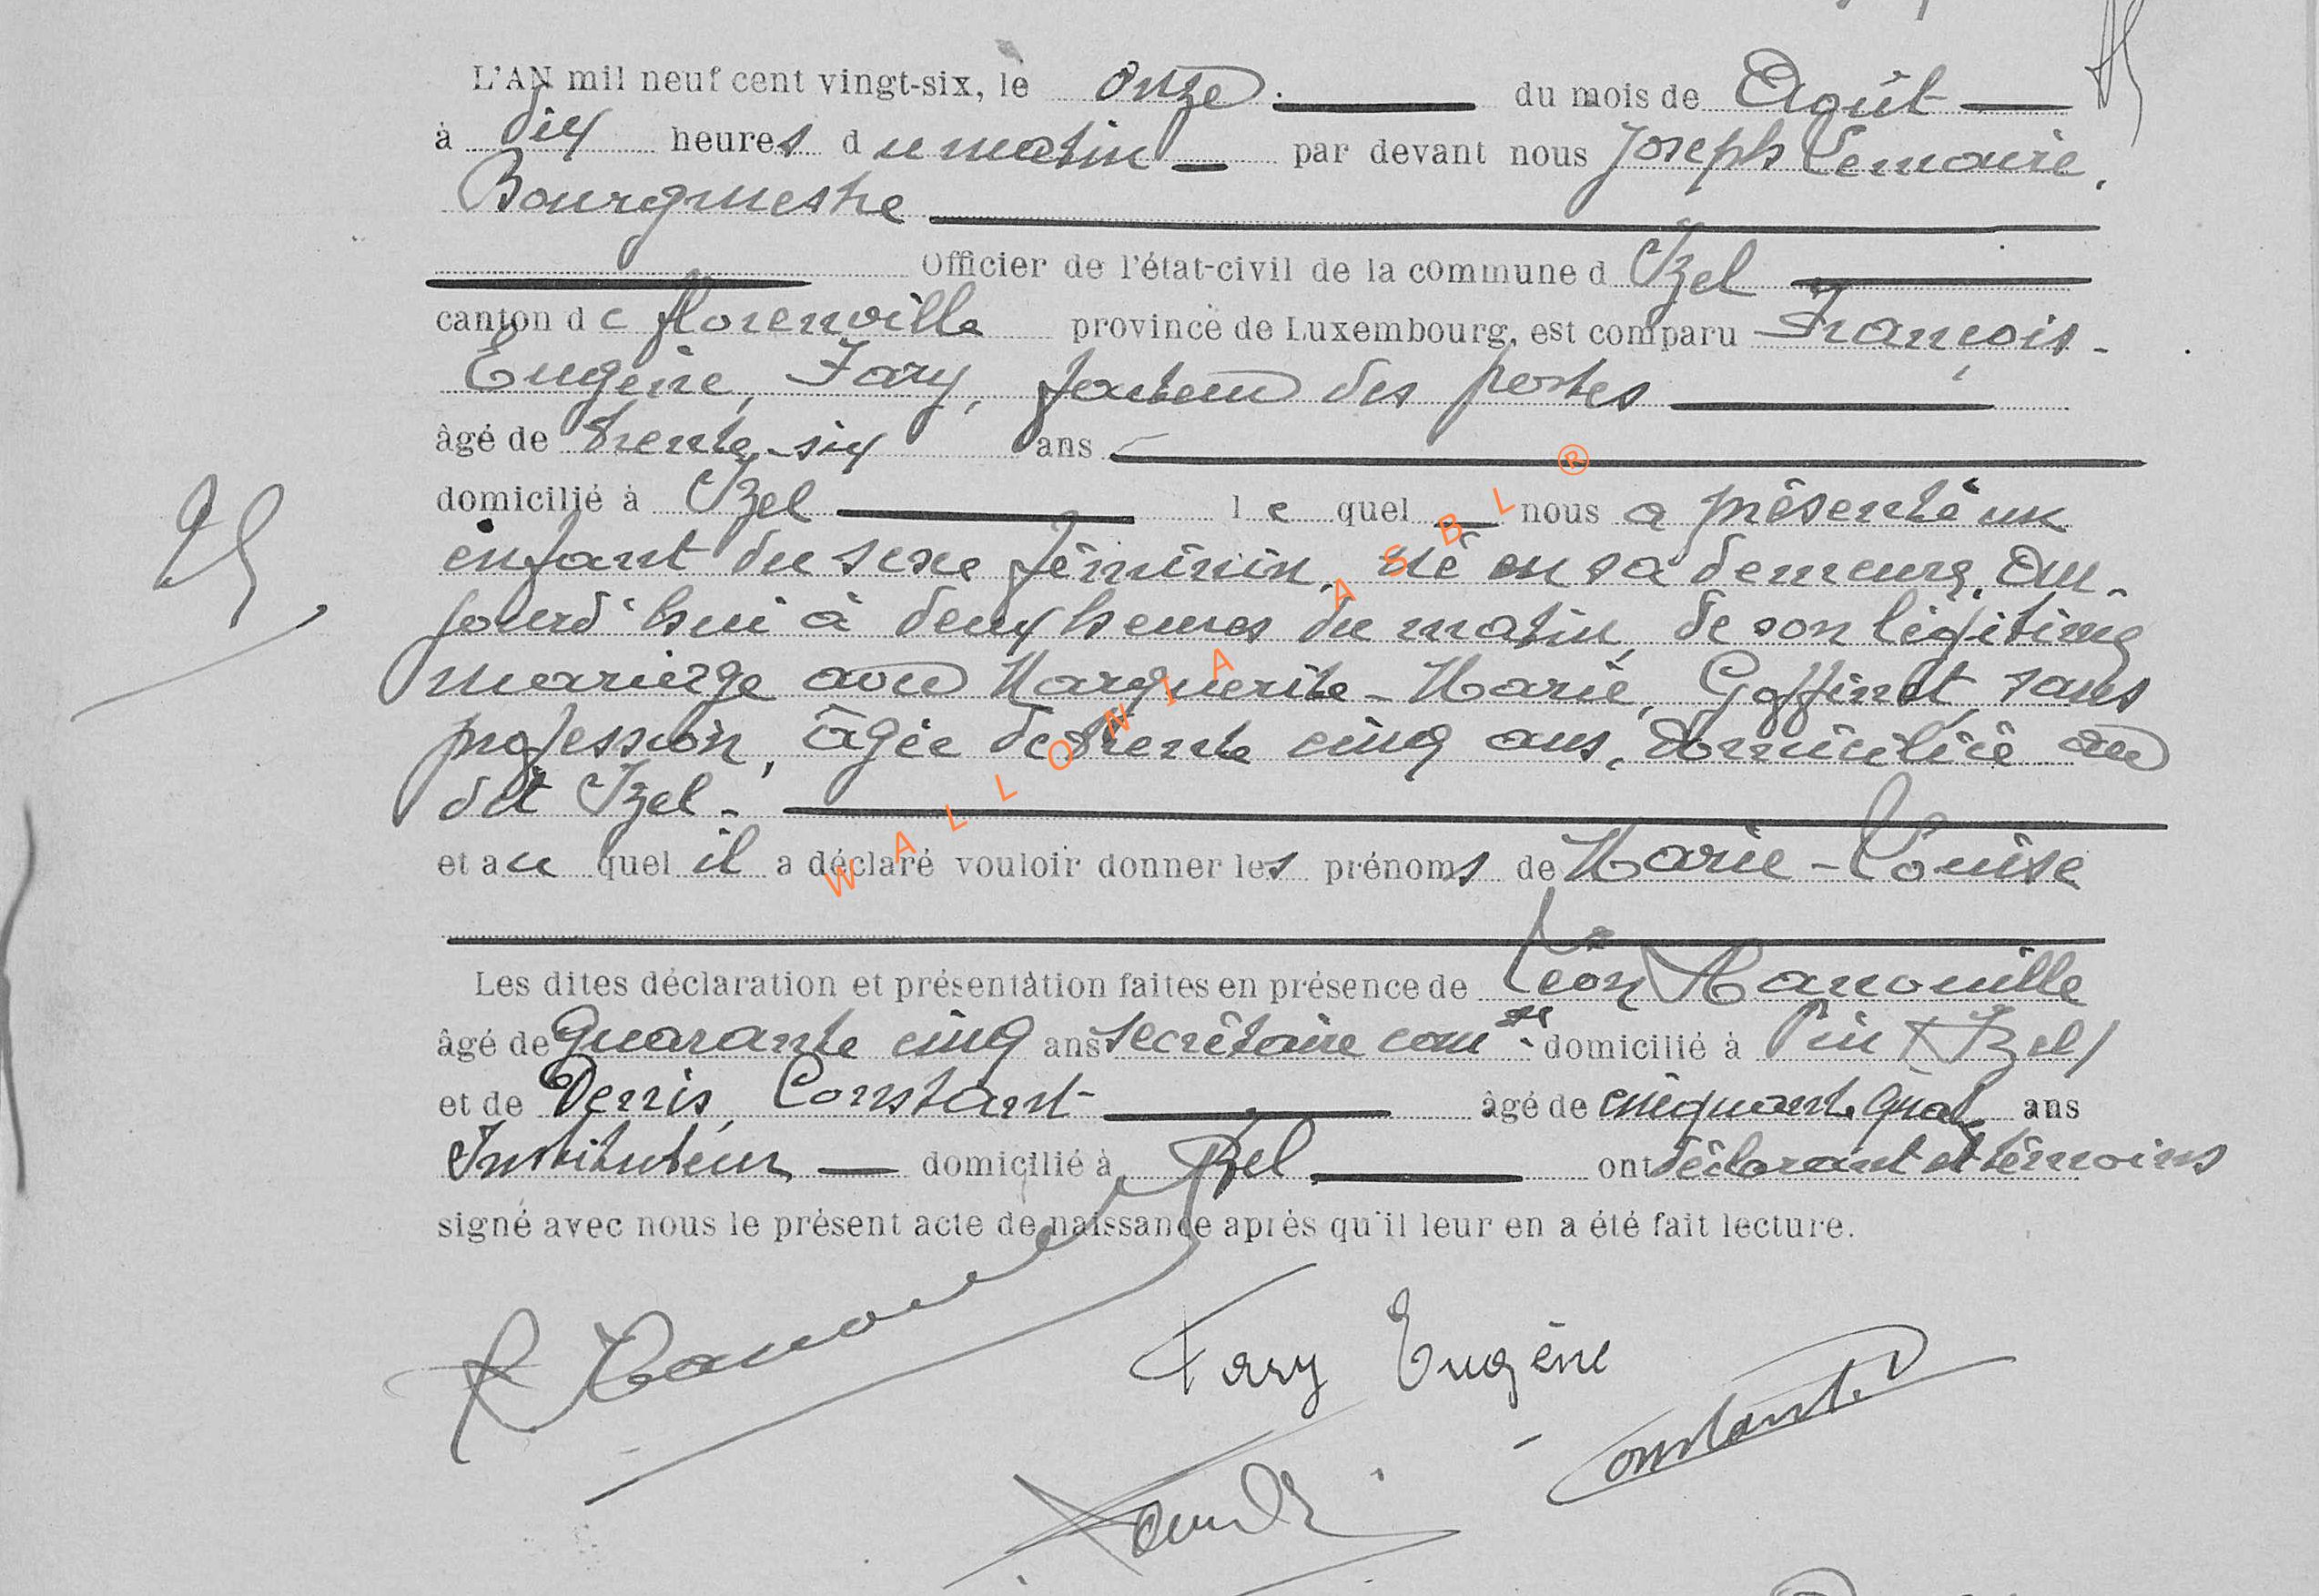 L'AN mil neuf cent vingt-six, le onze. du mois de Août
à dix heures du matin par devant nous Joseph Lemaire,
Bourgmestre
Officier de l'état-civil de la commune d Izel
canton de florenville province de Luxembourg, est comparu François-
Eugène, Fary, facteur des postes
âgé de trente-six ans
domicilié à Izel le quel nous a présenté un
enfant du sexe féminin, né en sa demeure, au-
jourd'hui à deux heures du matin, de son légitime
mariage avec Marguerite-Marie, Goffinet, sans
profession, âgée de trente cinq ans, domiciliée au
dit Izel.
et au quel il a déclaré vouloir donner les prénoms de Marie-Louise
Les dites déclaration et présentation faites en présence de Léon Hanouille
âgé de Quarante cinq ans secrétaire com domicilié à Pin (Izel)
et de Denis, Constant âgé de cinquante quat ans
Instituteur domicilié à Izel ont déclarant et témoins
signé avec nous le présent acte de naissance après qu'il leur en a été fait lecture.
Fary Eugène
Constant. D
WALLONIA ASBL ®